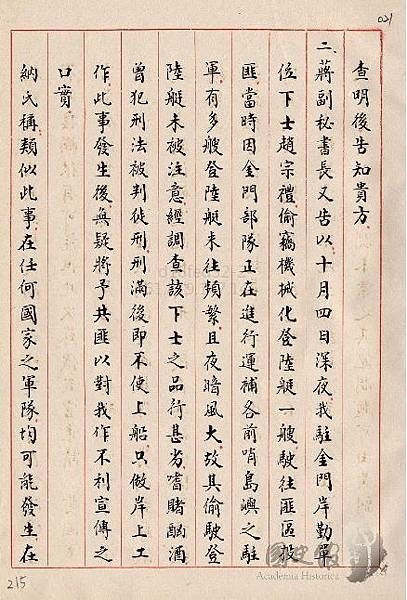 021
查明後告知貴方
二、蔣副秘書長又告以十月四日深夜我駐金門岸勤單
位下士趙宗禮偷竊機械化登陸艇一艘駛往匪區投
匪當時因金門部隊正在進行運補各前哨島嶼之駐
軍有多艘登陸艇來往頻繁且夜暗風大故其偷駛登
陸艇未被注意經調查該下士之品行甚劣嗜賭酗酒
曾犯刑法被判徒刑刑滿後即不使上船只做岸上工
作此事發生後無疑將予共匪以對我作不利宣傳之
口實
納氏稱類似此事在任何國家之軍隊均可能發生在
215
Academia Historica